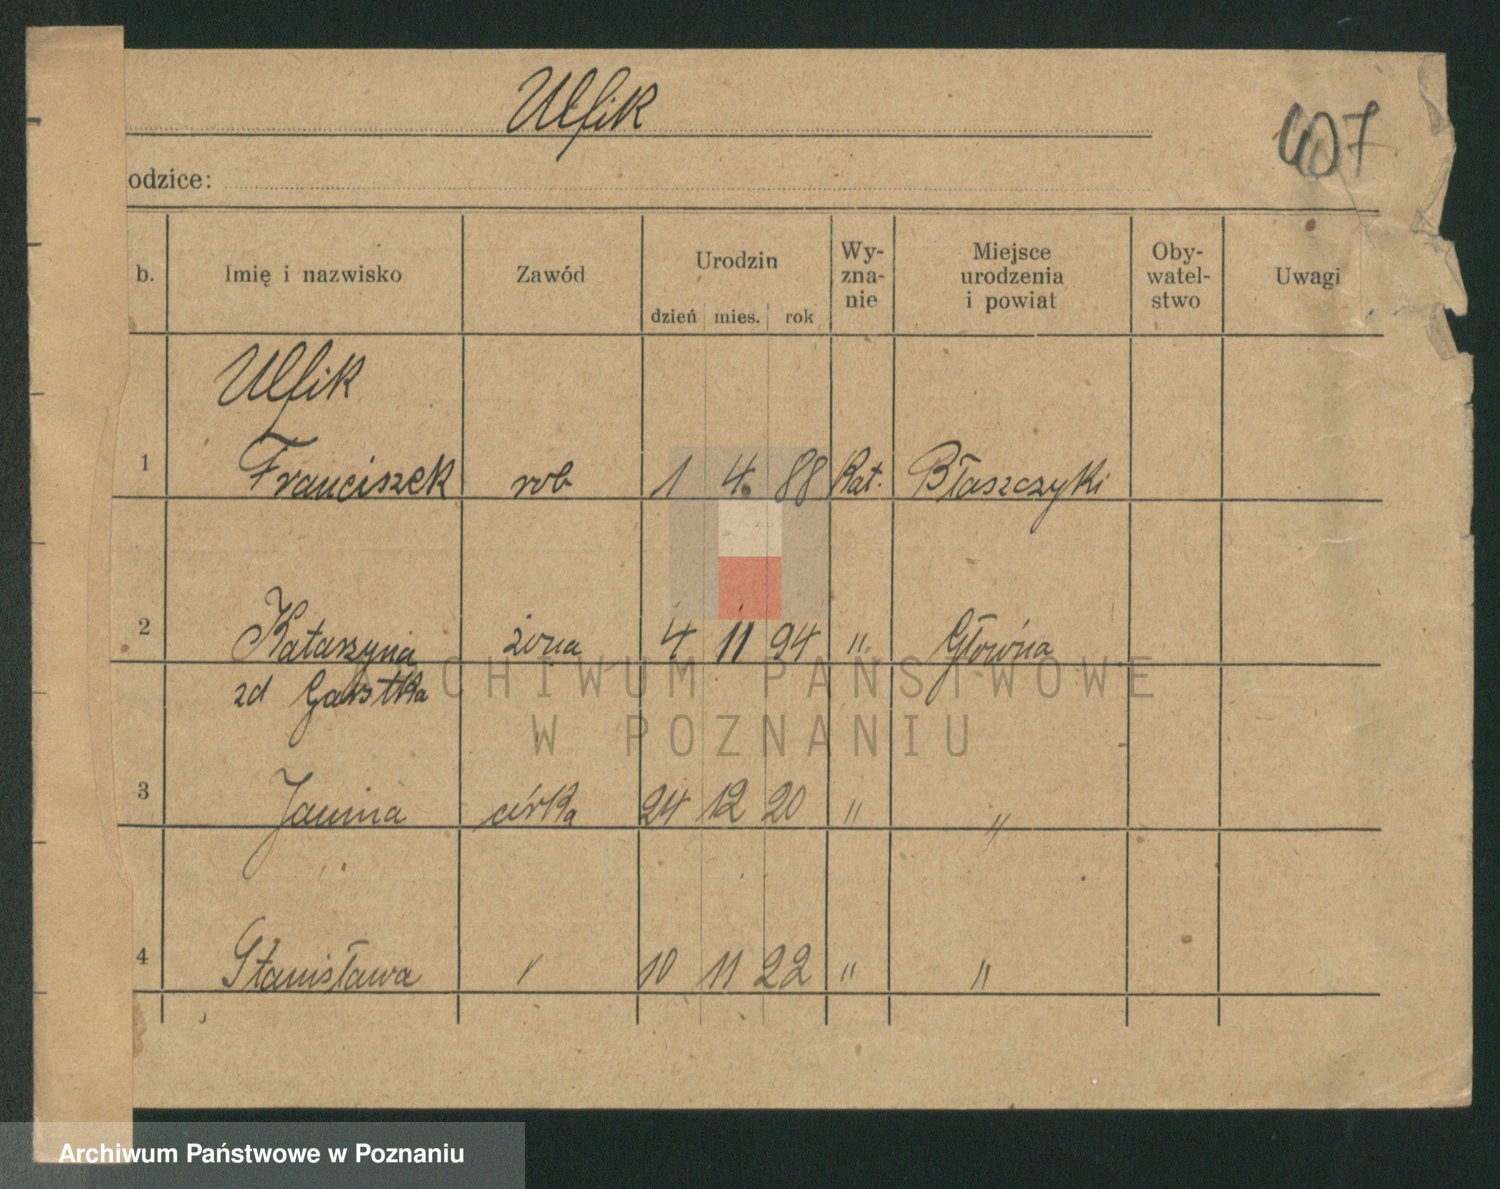 Ulfik
407
odzice:
b. Imię i nazwisko Zawód Urodzin dzień mies. rok Wy-zna-nie Miejsce urodzenia i powiat Oby-watel-stwo Uwagi
Ulfik
1 Franciszek rob 1 4 88 Kat. Błaszczyki
2 Katarzyna żona 4 11 94 " Główna
zd Garstka
3 Janina córka 24 12 20 " "
4 Stanisława " 10 11 22 " "
ARCHIWUM PAŃSTWOWE
W POZNANIU
Archiwum Państwowe w Poznaniu